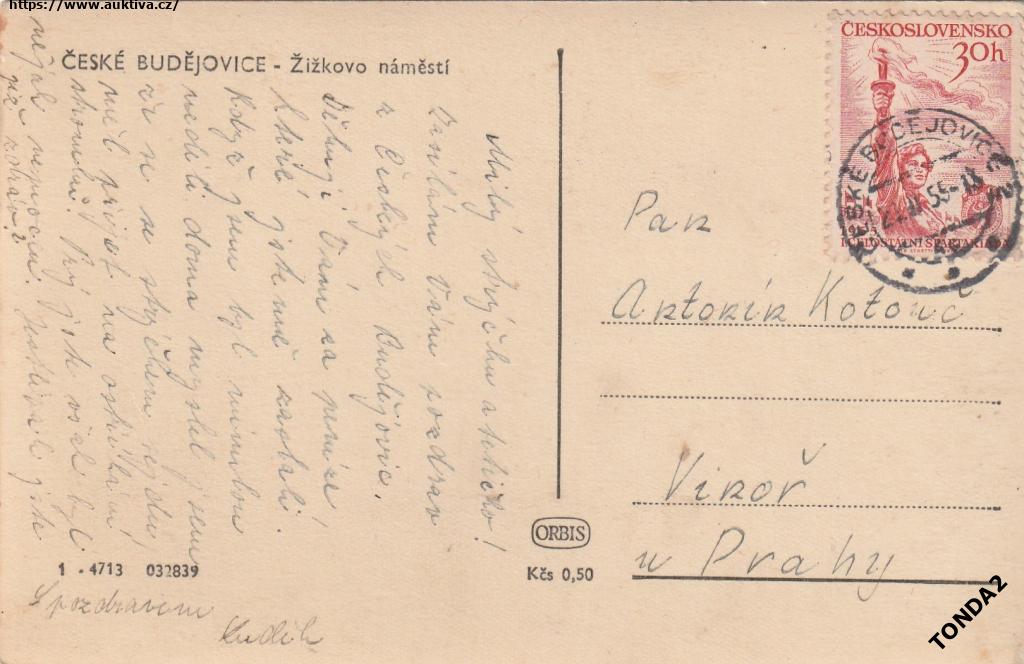 https://www.auktiva.cz/
ČESKÉ BUDĚJOVICE - Žižkovo náměstí
Milý strýčku a tetičko!
Zasílám Vám pozdrav
z Českých Budějovic.
Děkuji Vám za peníze
které jste mě zaslali.
Když jsem byl minulou
neděli doma myslel jsem
že se se strýčkem sejdu
měl přijet na
stromků. Prý jste však byl
nějak nemocen. jste
již zdráv?
S pozdravem
Luděk
1 - 4713 032839
ORBIS
Kčs 0,50
ČESKOSLOVENSKO
30h
1955
I.CELOSTÁTNÍ SPARTAKIÁDA
ČESKÉ BUDĚJOVICE 2
55-18
Pan
Antonín Kotouč
Vinoř
u Prahy
TONDA2